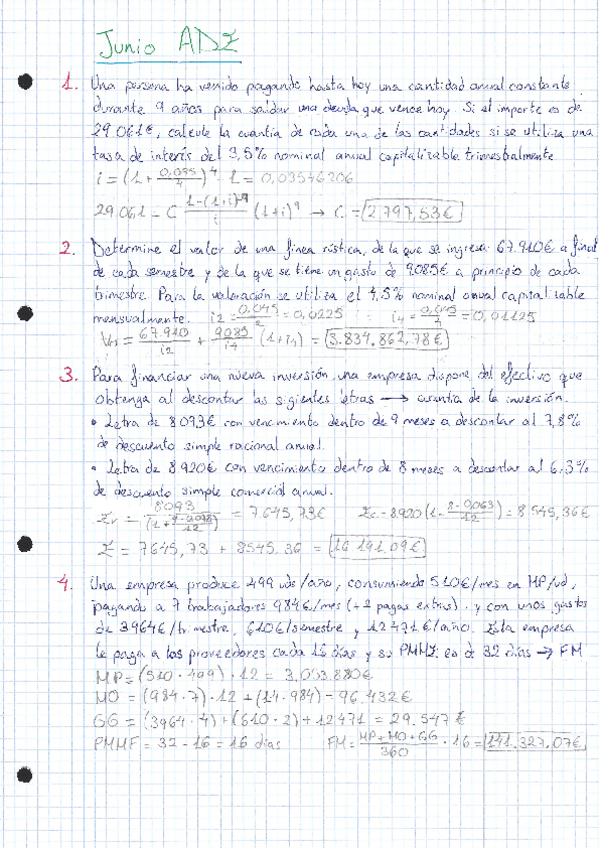 Junio ADE
1. Una persona ha venido pagando hasta hoy una cantidad anual constante
durante 9 años para saldar una deuda que vence hoy. Si el importe es de
29.061€, calcule la cuantia de cada una de las cantidades si se utiliza una
tasa de interés del 3,5% nominal anual capitalizable trimestralmente
i = (1 + 0,035/4)^4 - 1 = 0,03546206
29.061 = C (1-(1+i)^-9)/i (1+i)^9 → C = 2.797,53€
2. Determine el valor de una finca rústica, de la que se ingresa 67.910€ a final
de cada semestre y de la que se tiene un gasto de 9085€ a principio de cada
trimestre. Para la valoración se utiliza el 4,5% nominal anual capitalizable
mensualmente. i2 = 0,045/2 = 0,0225 i4 = 0,045/4 = 0,01125
= 67.910/i2 + 9085/i4 (1+i4) = 3.834.862,78€
3. Para financiar una nueva inversión, una empresa dispone del efectivo que
obtenga al descontar las sigientes letras → cuantia de la inversión.
• Letra de 8093€ con vencimiento dentro de 9 meses a descontar al 7,8%
de descuento simple racional anual.
• Letra de 8920€ con vencimiento dentro de 8 meses a descontar al 6,3%
de descuento simple comercial anual.
= 8093/(1+ 9·0,078/12) = 7645,73€ = 8.920(1- 8·0,063/12) = 8545,36€
= 7645,73 + 8545,36 = 16191,09€
4. Una empresa produce 499 uds/año, consumiendo 510€/mes en MP/ud,
pagando a 7 trabajadores 984€/mes (+2 pagas extras) y con unos gastos
de 3964€/trimestre, 610€/semestre y 12471€/año. Esta empresa
le paga a los proveedores cada 16 dias y su PMME es de 32 dias → FM
MP = (510 · 499) · 12 = 3.053.880€
MO = (984·7)·12 + (14·984) = 96.432€
GG = (3964·4) + (610·2) + 12471 = 29.547€
PMMF = 32 - 16 = 16 dias FM = MP+MO+GG/360 · 16 = 141.327,07€